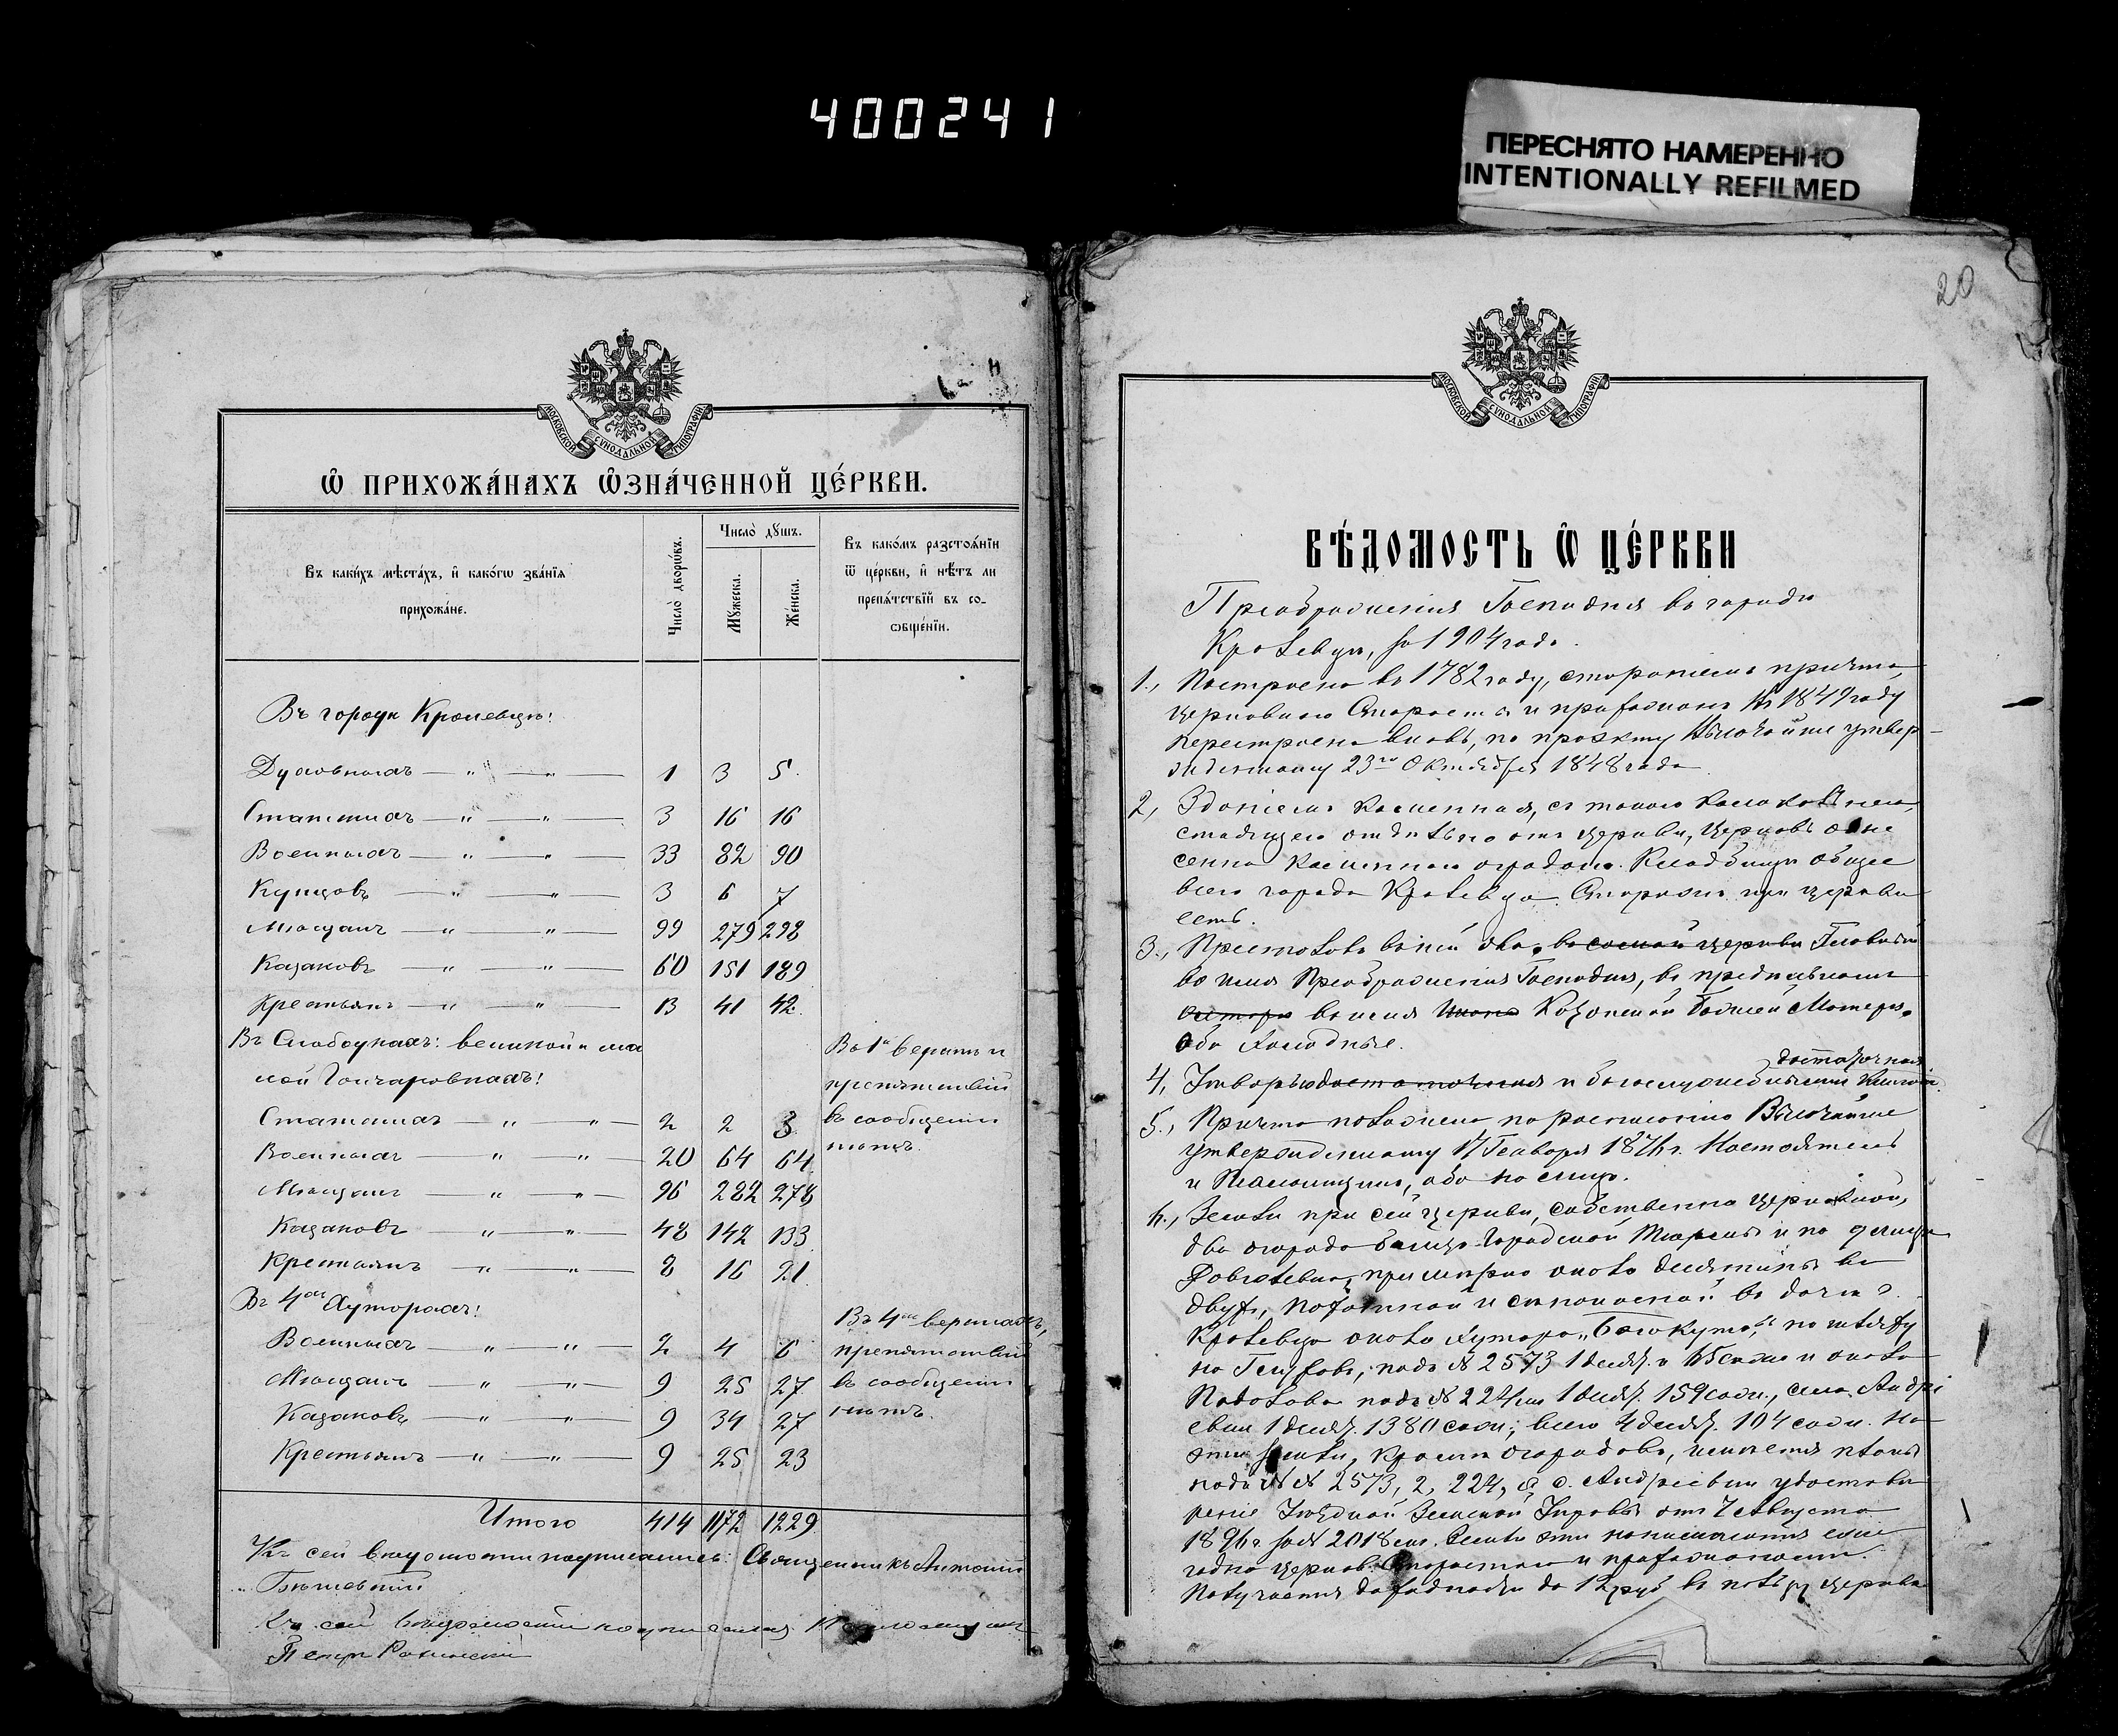 400241
ПЕРЕСНЯТО НАМЕРЕННО
INTENTIONALLY REFILMED
МОСКОВСКОЙ СѴНОДАЛЬНОЙ ТИПОГРАФІИ
Ѡ ПРИХОЖА́НАХЪ Ѡ҆ЗНА́ЧЕННОЙ ЦЕ́РКВИ.
Въ каки́хъ мѣста́хъ, и҆ како́гѡ зва́нїѧ прихожа́не.
Число̀ дворѡ́въ.
Число̀ дꙋ́шъ.
Мꙋ́жеска.
Же́нска.
Въ како́мъ разстоѧ́нїи
ѿ це́ркви, и҆ нѣ́тъ ли
препѧ́тствїй въ со-
ѻбще́нїи.
Въ городѣ Кролевцѣ:
Духовныхъ — „ — „ — 1 3 5
Статскихъ — „ — „ — 3 16 16
Военныхъ — „ — „ — 33 82 90
Купцовъ — „ — „ — 3 6 7
Мѣщанъ — „ — „ — 99 279 298
Казаковъ — „ — „ — 60 151 189
Крестьянъ — „ — „ — 13 41 42
Въ Слободкахъ: великой и ма
лой Гончаровкахъ:
Статскихъ — „ — „ — 2 2 3
Военныхъ — „ — „ — 20 64 64
Мѣщанъ — „ — „ — 96 282 278
Казаковъ — „ — „ — 48 142 133
Крестьянъ — „ — „ — 8 16 21
Въ 1й верстѣ
препятствій
въ сообщеніи
нѣтъ.
Въ 4хъ Хуторахъ:
Военныхъ — „ — „ — 2 4 6
Мѣщанъ — „ — „ — 9 25 27
Казаковъ — „ — „ — 9 34 27
Крестьянъ — „ — „ — 9 25 23
Въ 4хъ верстахъ,
препятствій
въ сообщеніи
нѣтъ.
Итого 414 1172 1229
Къ сей вѣдомости подписались: Священникъ Антоній
Къ сей вѣдомости подписался Псаломщикъ
Петръ
20
МОСКОВСКОЙ СѴНОДАЛЬНОЙ ТИПОГРАФІИ
ВѢ́ДОМОСТЬ Ѡ҆ ЦЕ́РКВИ
Преображенія Господня въ городѣ
Кролевцѣ, за 1904 годъ.
1., Построена въ 1782 году, стараніемъ причта,
церковнаго Старосты и прихожанъ. Въ 1849 году
перестроена вновь, по проэкту Высочайше утвер-
жденному 23го Октября 1848 года
2, Зданіемъ каменная, съ такою колокольнею,
стоящею отдѣльно отъ церкви, церковь обне
сенна каменною оградою. Кладбище общее
всего города Кролевца. Сторожка при церкви
есть.
3., Престоловъ въ ней два, въ самой церкви Главный
во имя Преображенія Господня, въ предѣльномъ
во имя Иконы Казанской Божіей Матери,
оба холодные.
достаточна
4, Утварью достаточная и богослужебными книгами.
5., Причта положено по росписанію Высочайше
утвержденному 17 Генваря 1876 г. Настоятель
и Псаломщикъ, оба на лицо.
6., Земли при сей церкви, собственно церковной,
два огорода близъ Городской Тюрьмы и по улицѣ
примѣрно около десятины въ
двухъ, пахатной и сѣнокосной въ дачѣ г.
Кролевца около хутора „Богокута", по шляху
на Глуховъ, подъ № 2573 1 десят. и сажен и около
Подолова подъ № 224мъ 1 десят. 159 саж., село Андрі
евки 1 десят. 1380 саж.; всего 4 десят. 104 саж. На
эти земли, кромѣ огородовъ, имѣются планы
подъ №№ 2573, 2, 224, а с. Андріевки удостовѣ
реніе Уѣздной Земской Управы отъ 7 Августа
1896 г. за № 2018мъ. Земли эти
церков. Старостою и прихожанами.
Получается доходности до 12 руб въ пользу церкви